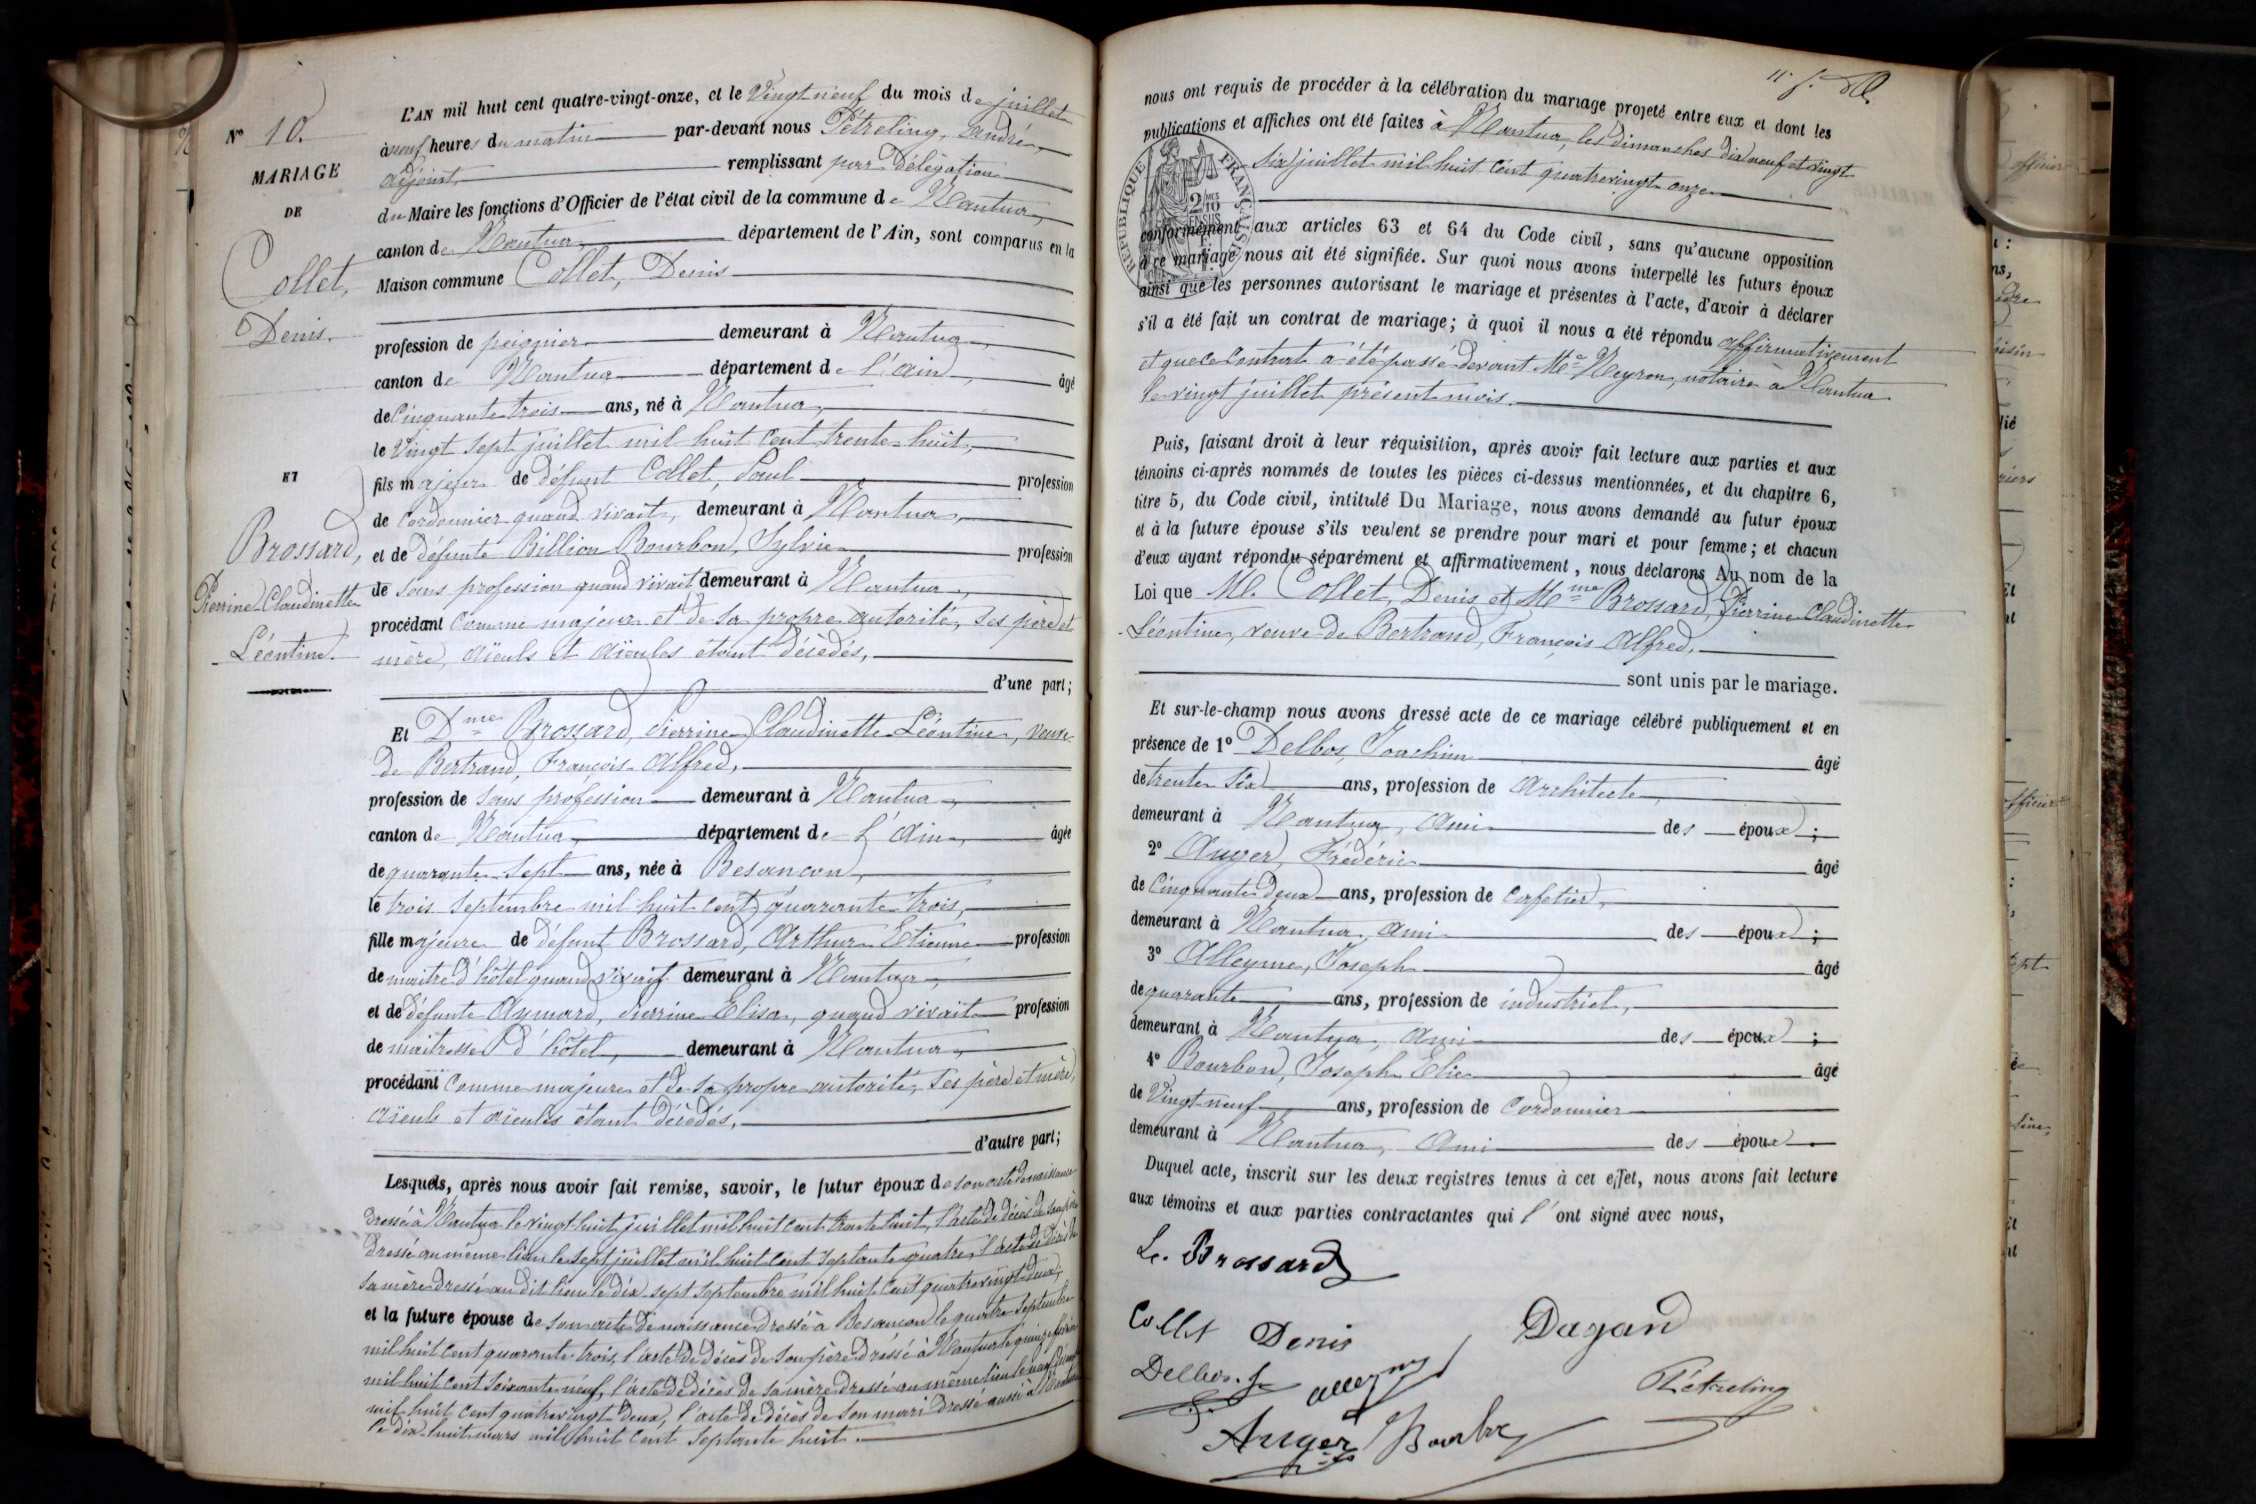 N° 10.
MARIAGE
DE
Collet,
Denis.
ET
Brossard,
Pierrine Claudinette
Léontine.
L'AN mil huit cent quatre-vingt-onze, et le Vingt neuf du mois de juillet
à neuf heures du matin par-devant nous Pétreling, André,
adjoint, remplissant par Délégation
du Maire les fonctions d'Officier de l'état civil de la commune de Nantua,
canton de Nantua, département de l'Ain, sont comparus en la
Maison commune Collet, Denis
profession de peignier demeurant à Nantua,
canton de Nantua département de l'Ain, âgé
de Cinquante trois ans, né à Nantua,
le Vingt sept juillet mil huit cent trente-huit,
fils majeur de défunt Collet, Paul profession
de cordonnier quand vivait, demeurant à Nantua,
et de défunte Billion Bourbon, Sylvie profession
de sans profession quand vivait demeurant à Nantua,
procédant comme majeur et de sa propre autorité, ses père et
mère, aïeuls et aïeules étant décédés,
d'une part;
Et Dme Brossard, Pierrine Claudinette Léontine, veuve
de Bertrand, François-Alfred,
profession de sans profession demeurant à Nantua,
canton de Nantua, département de l'Ain, âgée
de quarante-sept ans, née à Besançon,
le trois Septembre mil huit cent quarante-trois,
fille majeure de défunt Brossard, Arthur Etienne profession
de maitre d'hôtel quand vivait demeurant à Nantua,
et de défunte Aymard, Pierrine Elisa, quand vivait profession
de maitresse d'hôtel, demeurant à Nantua,
procédant comme majeure et de sa propre autorité, ses père et mère,
aïeuls et aïeules étant décédés,
d'autre part;
Lesquels, après nous avoir fait remise, savoir, le futur époux de son acte de naissance
dressé à Nantua le vingt huit juillet mil huit cent trente huit, l'acte de décès de son père
dressé au même lieu le sept juillet mil huit cent septante quatre, l'acte de décès de
sa mère dressé au dit lieu le dix-sept septembre mil huit cent quatre vingt deux,
et la future épouse de son acte de naissance dressé à Besançon le quatre septembre
mil huit cent quarante trois, l'acte de décès de son père dressé à Nantua le quinze février
mil huit cent soixante neuf, l'acte de décès de sa mère dressé au même lieu le neuf
mil huit cent quatre vingt deux, l'acte de décès de son mari dressé aussi à Nantua
le dix-huit mars mil huit cent septante huit.
nous ont requis de procéder à la célébration du mariage projeté entre eux et dont les
publications et affiches ont été faites à Nantua, les dimanches dix neuf et vingt
six juillet mil huit cent quatre vingt onze
RÉPUBLIQUE FRANÇAISE
conformément aux articles 63 et 64 du Code civil, sans qu'aucune opposition
à ce mariage nous ait été signifiée. Sur quoi nous avons interpellé les futurs époux
ainsi que les personnes autorisant le mariage et présentes à l'acte, d'avoir à déclarer
s'il a été fait un contrat de mariage; à quoi il nous a été répondu affirmativement
et que ce contrat a été passé devant Me Neyron, notaire à Nantua
le vingt juillet présent mois.
Puis, faisant droit à leur réquisition, après avoir fait lecture aux parties et aux
témoins ci-après nommés de toutes les pièces ci-dessus mentionnées, et du chapitre 6,
titre 5, du Code civil, intitulé Du Mariage, nous avons demandé au futur époux
et à la future épouse s'ils veulent se prendre pour mari et pour femme; et chacun
d'eux ayant répondu séparément et affirmativement, nous déclarons Au nom de la
Loi que M. Collet, Denis et Mme Brossard, Pierrine Claudinette
Léontine, veuve de Bertrand, François Alfred,
sont unis par le mariage.
Et sur-le-champ nous avons dressé acte de ce mariage célébré publiquement et en
présence de 1° Delbos, Joachim âgé
de trente six ans, profession de Architecte,
demeurant à Nantua, ami des époux;
2° Auger, Frédéric âgé
de Cinquante deux ans, profession de cafetier,
demeurant à Nantua, ami des époux;
3° Alleyme, Joseph âgé
de quarante ans, profession de industriel,
demeurant à Nantua, ami des époux;
4° Bourbon, Joseph Elie âgé
de Vingt neuf ans, profession de Cordonnier
demeurant à Nantua, ami des époux.
Duquel acte, inscrit sur les deux registres tenus à cet effet, nous avons fait lecture
aux témoins et aux parties contractantes qui l'ont signé avec nous,
Le. Brossard
Collet Denis
Dagand
Delbos. J.
Pétreling
Auger